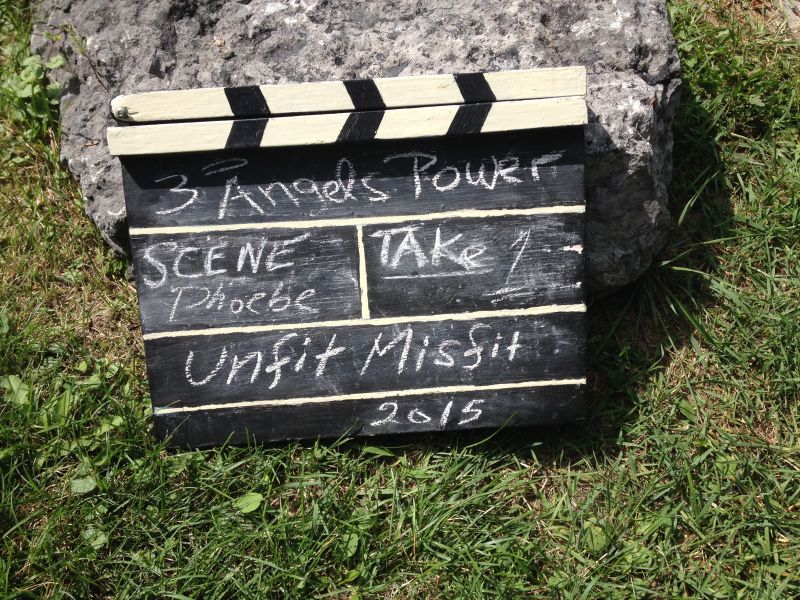 3 Angels Power
SCENE
Phoebe
TAKe 1
Unfit Misfit
2015